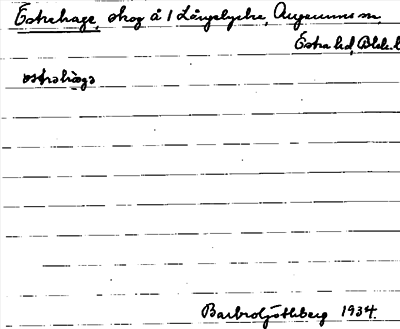 Östrehage, skog å 1 Långelycke, Augerums sn,
Östra hd, Blek.l
østrahaga
Barbro Göthberg 1934.